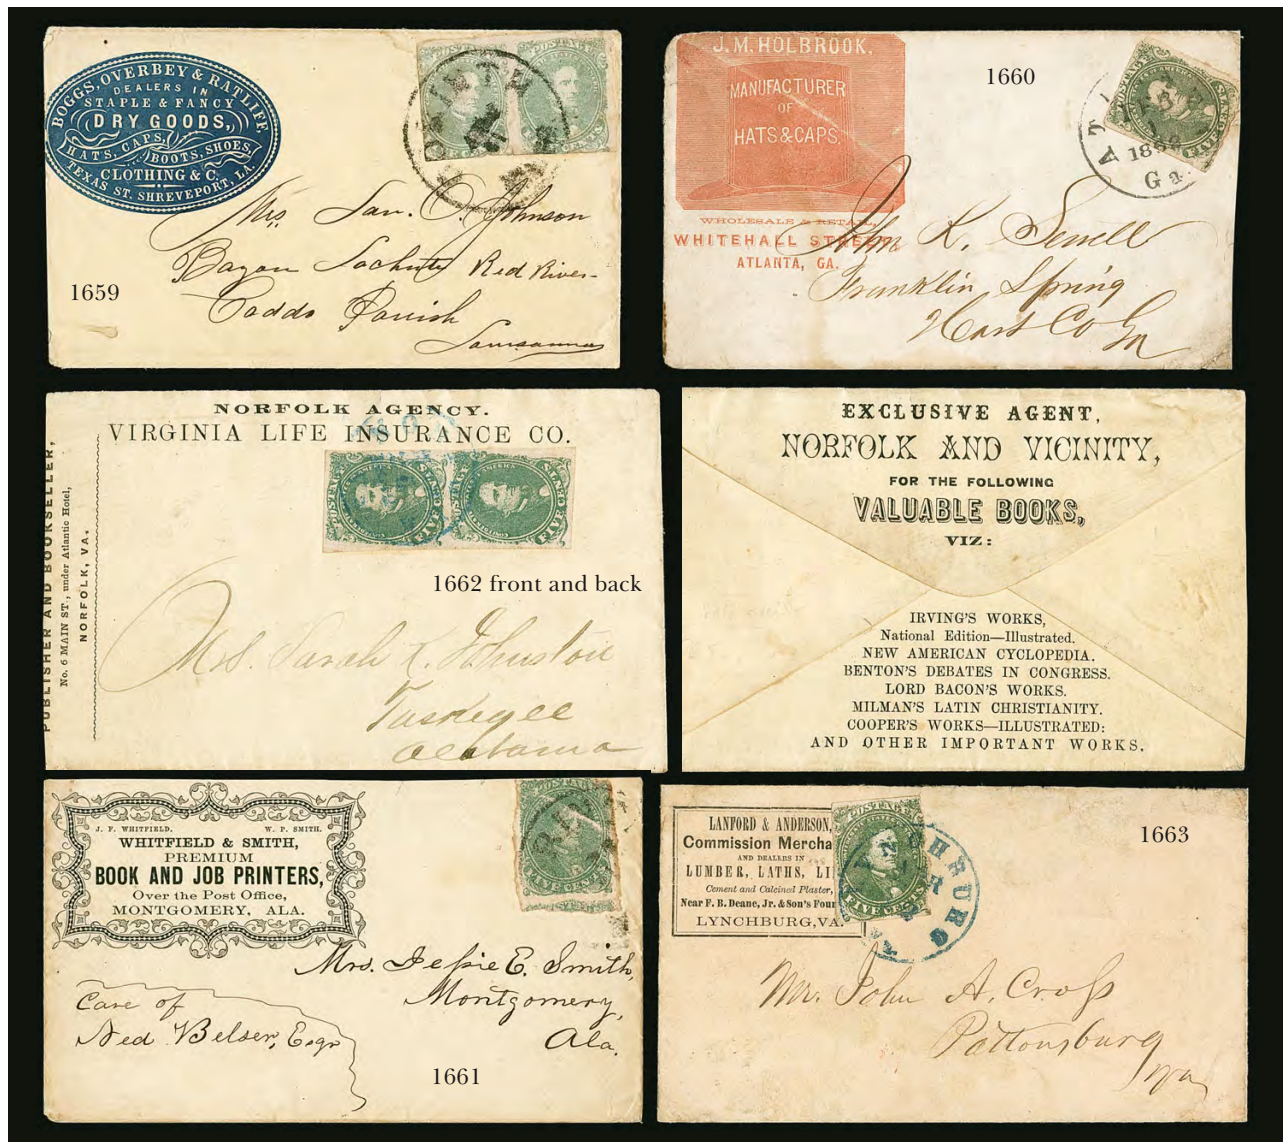 BOGGS, OVERBEY & RATLIFF,
DEALERS IN
STAPLE & FANCY
DRY GOODS,
HATS, CAPS,
BOOTS, SHOES,
CLOTHING & C.
TEXAS ST. SHREVEPORT, LA.
Johnson
Red River
Caddo Parish
1659
J. M. HOLBROOK.
MANUFACTURER
OF
HATS & CAPS.
WHOLESALE & RETAIL,
WHITEHALL STREET
ATLANTA, GA.
1660
Ga.
John K. Sewell
Franklin Spring
Hart Co Ga
NORFOLK AGENCY.
VIRGINIA LIFE INSURANCE CO.
PUBLISHER AND BOOKSELLER,
No. 6 MAIN ST., under Atlantic Hotel,
NORFOLK, VA.
1662 front and back
Mrs. Sarah
Tuskegee
Alabama
EXCLUSIVE AGENT,
NORFOLK AND VICINITY,
FOR THE FOLLOWING
VALUABLE BOOKS,
VIZ:
IRVING'S WORKS,
National Edition—Illustrated.
NEW AMERICAN CYCLOPEDIA.
BENTON'S DEBATES IN CONGRESS.
LORD BACON'S WORKS.
MILMAN'S LATIN CHRISTIANITY.
COOPER'S WORKS—ILLUSTRATED:
AND OTHER IMPORTANT WORKS.
J. F. WHITFIELD. W. P. SMITH.
WHITFIELD & SMITH,
PREMIUM
BOOK AND JOB PRINTERS,
Over the Post Office,
MONTGOMERY, ALA.
FIVE CENTS
Mrs. Jessie E. Smith,
Montgomery,
Ala.
Care of
Ned Belser, Esqr
1661
LANFORD & ANDERSON,
Commission Mercha
AND DEALERS IN
LUMBER, LATHS, LI
Cement and Calcined Plaster,
Near F. B. Deane, Jr. & Son's Foun
LYNCHBURG, VA.
POSTAGE
FIVE CENTS
LYNCHBURG
1663
Mr. John A. Cross
Pattonsburg
Va